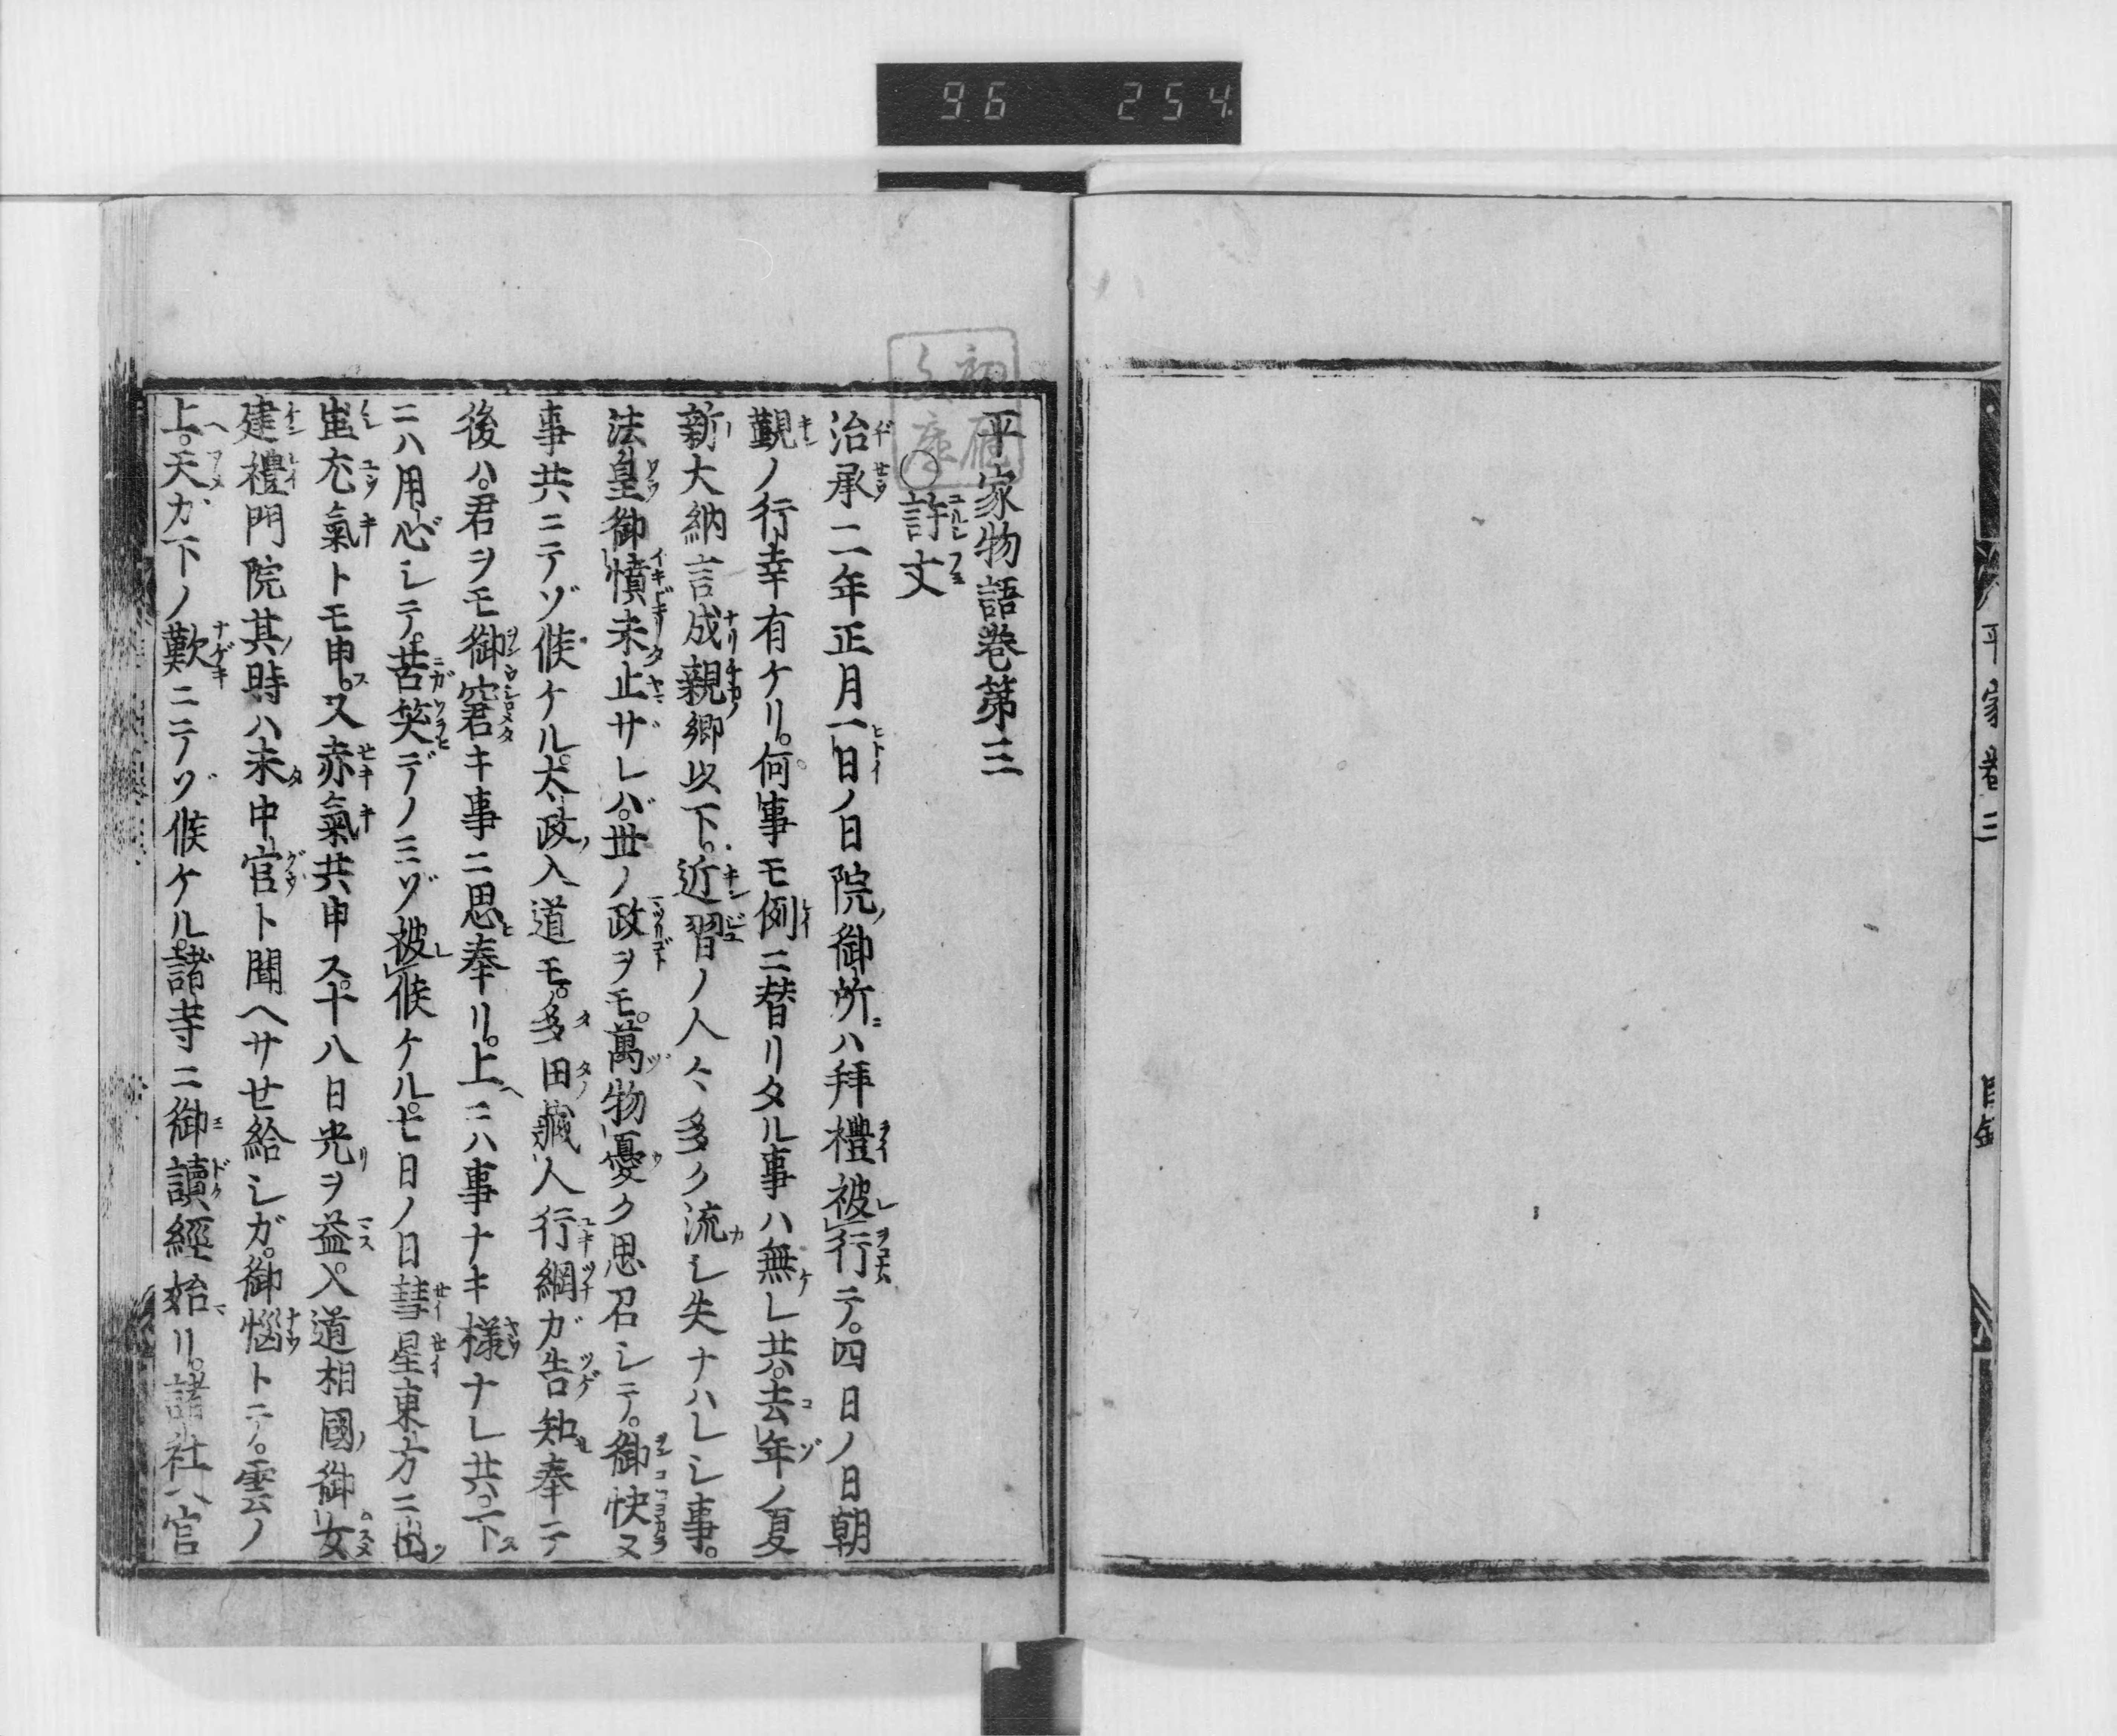 96 254
平家卷三
目録
平家物語巻第三
○許文
治承二年正月一日ノ日院御所ハ拜禮被行テ。四日ノ日朝
覲ノ行幸有ケリ。何事モ例ニ替リタル事ハ無レ共。去年ノ夏
新大納言成親卿以下。近習ノ人々多ク流シ失ナハレシ事。
法皇御憤未止ザレバ。世ノ政ヲモ。萬物憂ク思召シテ。御快ヌ
事共ニテゾ候ケル。太政入道モ。多田蔵人行綱ガ告知奉テ
後ハ。君ヲモ御窘キ事ニ思奉リ。上ニハ事ナキ様ナレ共。下
ニハ用心シテ。苦笑デノミゾ被候ケル。七日ノ日彗星東方ニ出
蚩尤氣トモ申ス。又赤氣共申ス。十八日光ヲ益。入道相國御女
建禮門院其時ハ未中宮ト聞ヘサセ給シガ。御惱トテ。雲ノ
上。天ガ下ノ歎ニテゾ候ケル。諸寺ニ御讀經始リ。諸社ヘ官